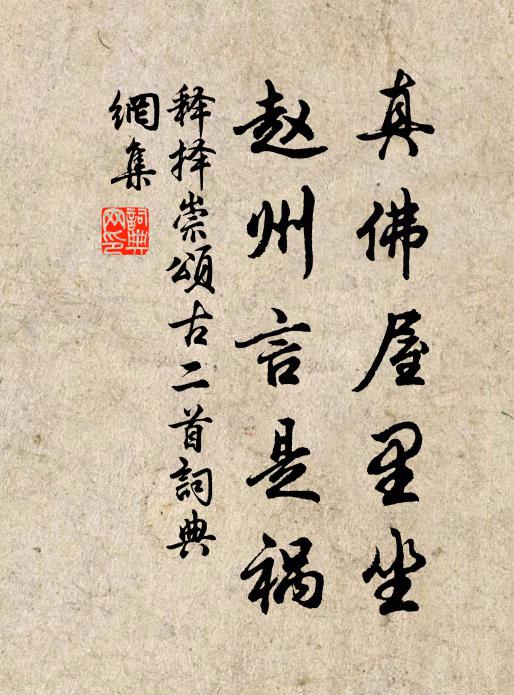 真佛屋里坐
赵州言是祸
释择崇颂古二首詞典
網集
詞典
网印